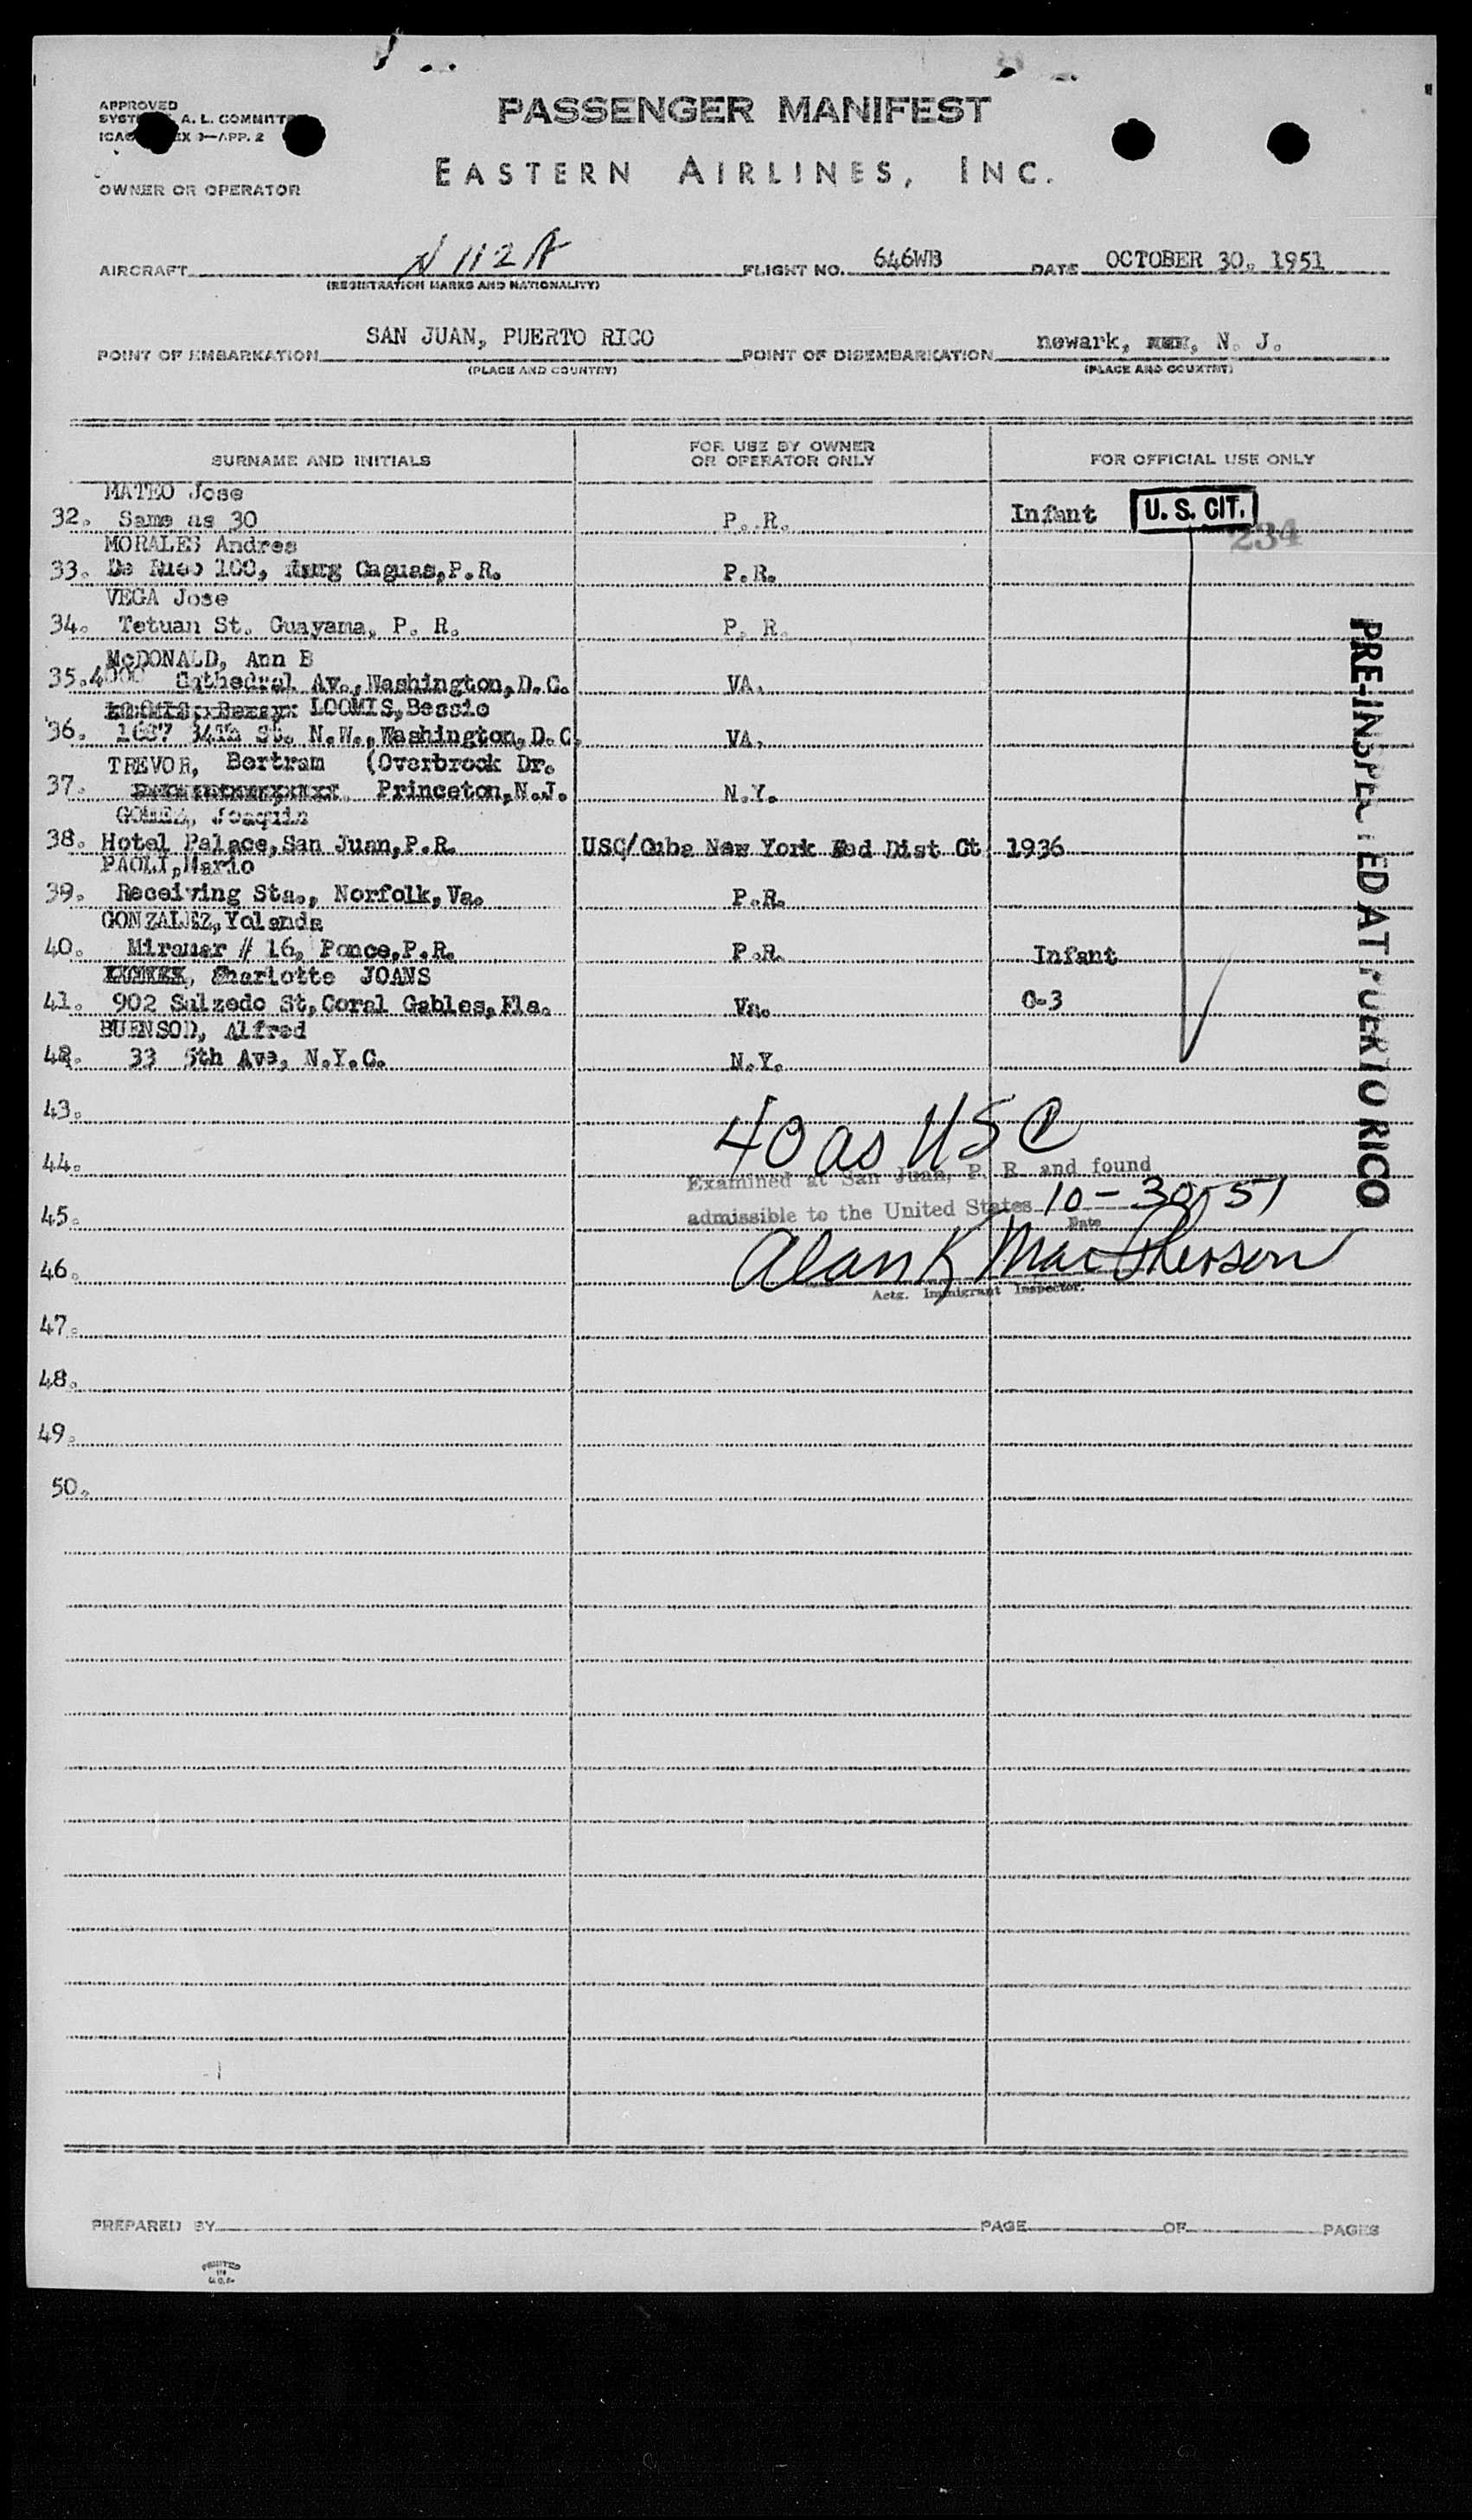 PASSENGER MANIFEST
EASTERN AIRLINES, INC.
APPROVED
A. L.
APP. 2
OWNER OR OPERATOR
AIRCRAFT N 112 A FLIGHT NO. 646WB DATE OCTOBER 30, 1951
(REGISTRATION MARKS AND NATIONALITY)
POINT OF EMBARKATION SAN JUAN, PUERTO RICO POINT OF DISEMBARKATION newark, N. J.
(PLACE AND COUNTRY) (PLACE AND COUNTRY)
SURNAME AND INITIALS FOR USE BY OWNER OR OPERATOR ONLY FOR OFFICIAL USE ONLY
MATEO Jose
32. Same as 30 P. R. Infant U. S. CIT.
234
MORALES Andres
33. 100, Caguas, P.R. P.R.
VEGA Jose
34. Tetuan St. Guayama, P. R. P. R.
McDONALD, Ann B
35. 4000 Cathedral Av., Washington, D.C. VA.
LOOMIS, Bessie
36. 34th St. N.W., Washington, D.C. VA.
TREVOR, Bertram (Overbrook Dr.
37. Princeton, N.J. N.Y.
GOMEZ, Joaquin
38. Hotel Palace, San Juan, P.R. USC/Cuba New York Fed Dist Ct 1936
PAOLI, Mario
39. Receiving Sta., Norfolk, Va. P.R.
GONZALEZ, Yolanda
40. Miramar # 16, Ponce, P.R. P.R. Infant
Charlotte JOANS
41. 902 Salzedo St, Coral Gables, Fla. Va. 0-3
BUENSOD, Alfred
42. 33 5th Ave, N.Y.C. N.Y.
43.
40 as USC
44.
Examined at San Juan, P. R. and found
admissible to the United States 10-30-51
Date
45.
Alan K MacPherson
46.
Actg. Immigrant Inspector.
47.
48.
49.
50.
PRE-INSPECTED AT PUERTO RICO
PREPARED BY PAGE OF PAGES
PRINTED
IN
U.S.A.